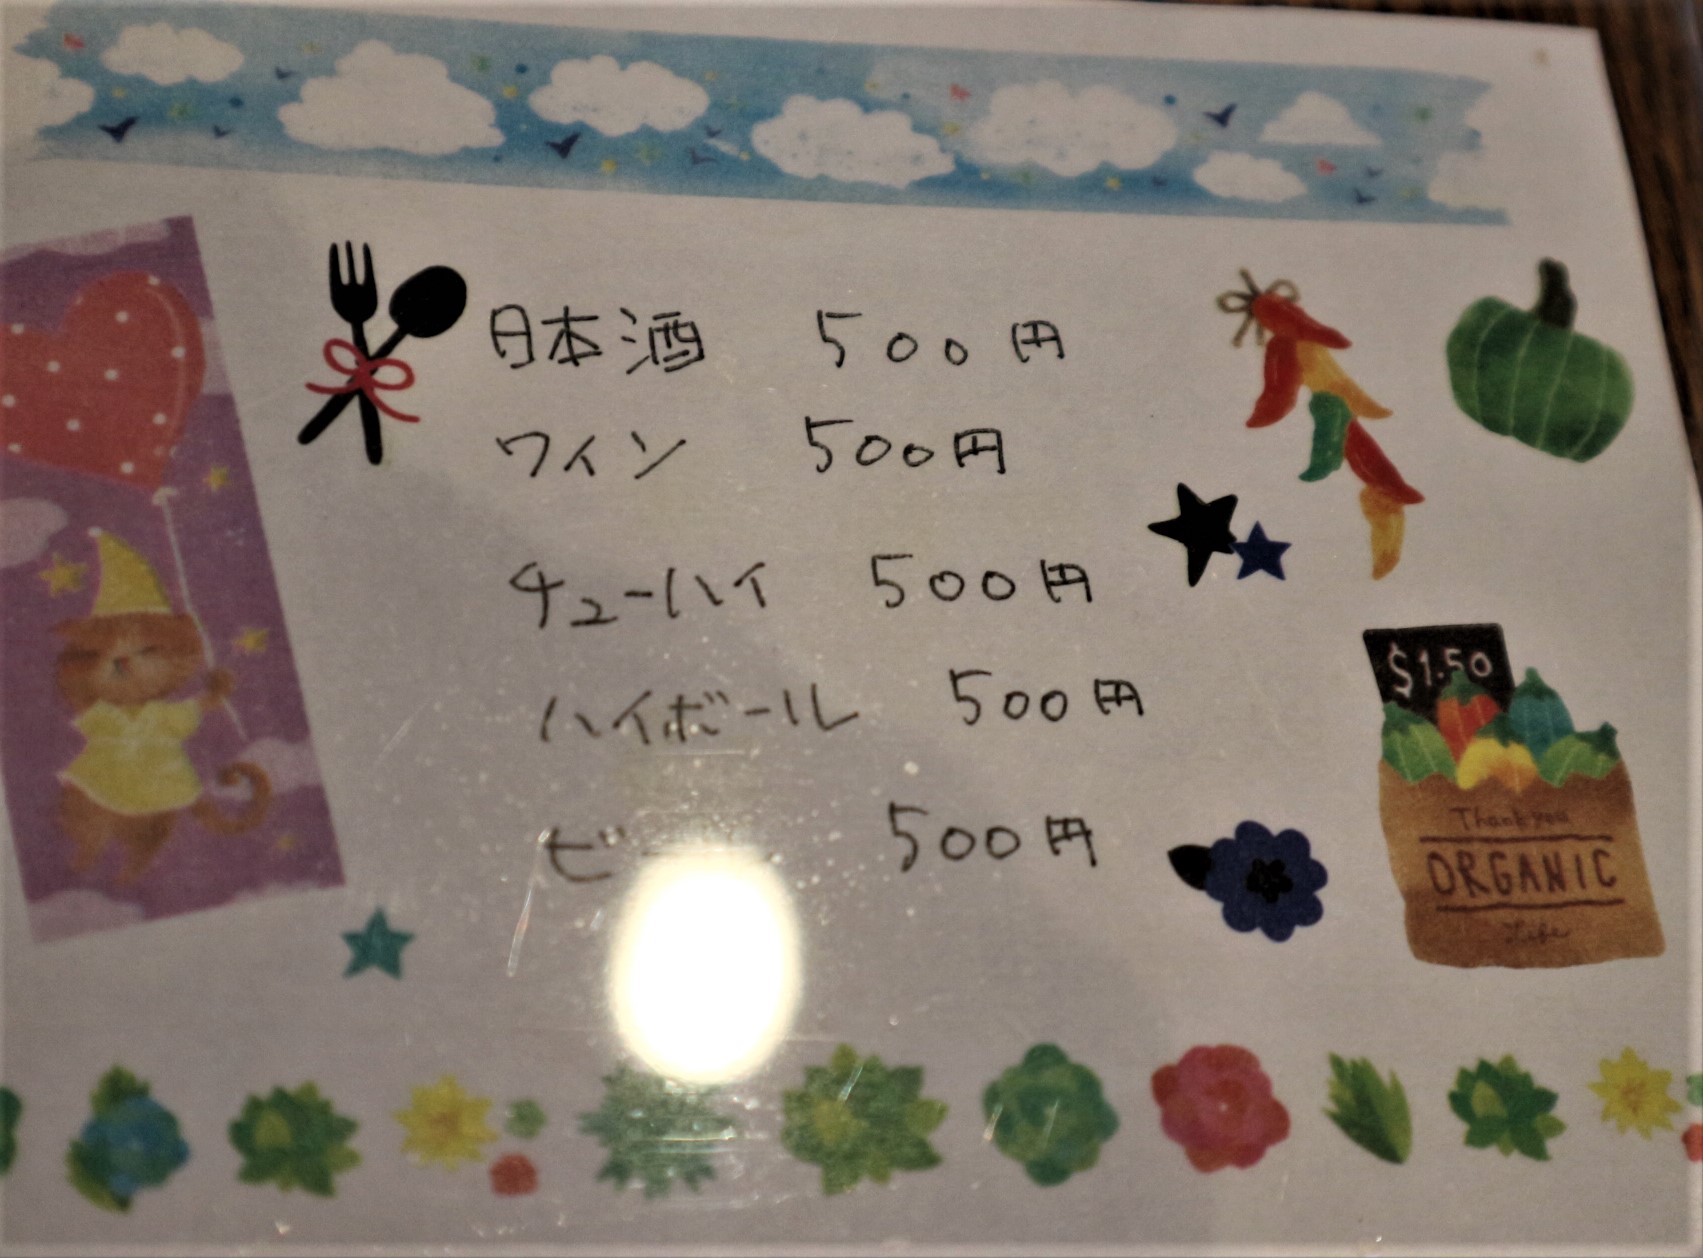 日本酒 500円
ワイン 500円
チューハイ 500円
ハイボール 500円
500円
$1.50
Thank you
ORGANIC
Life